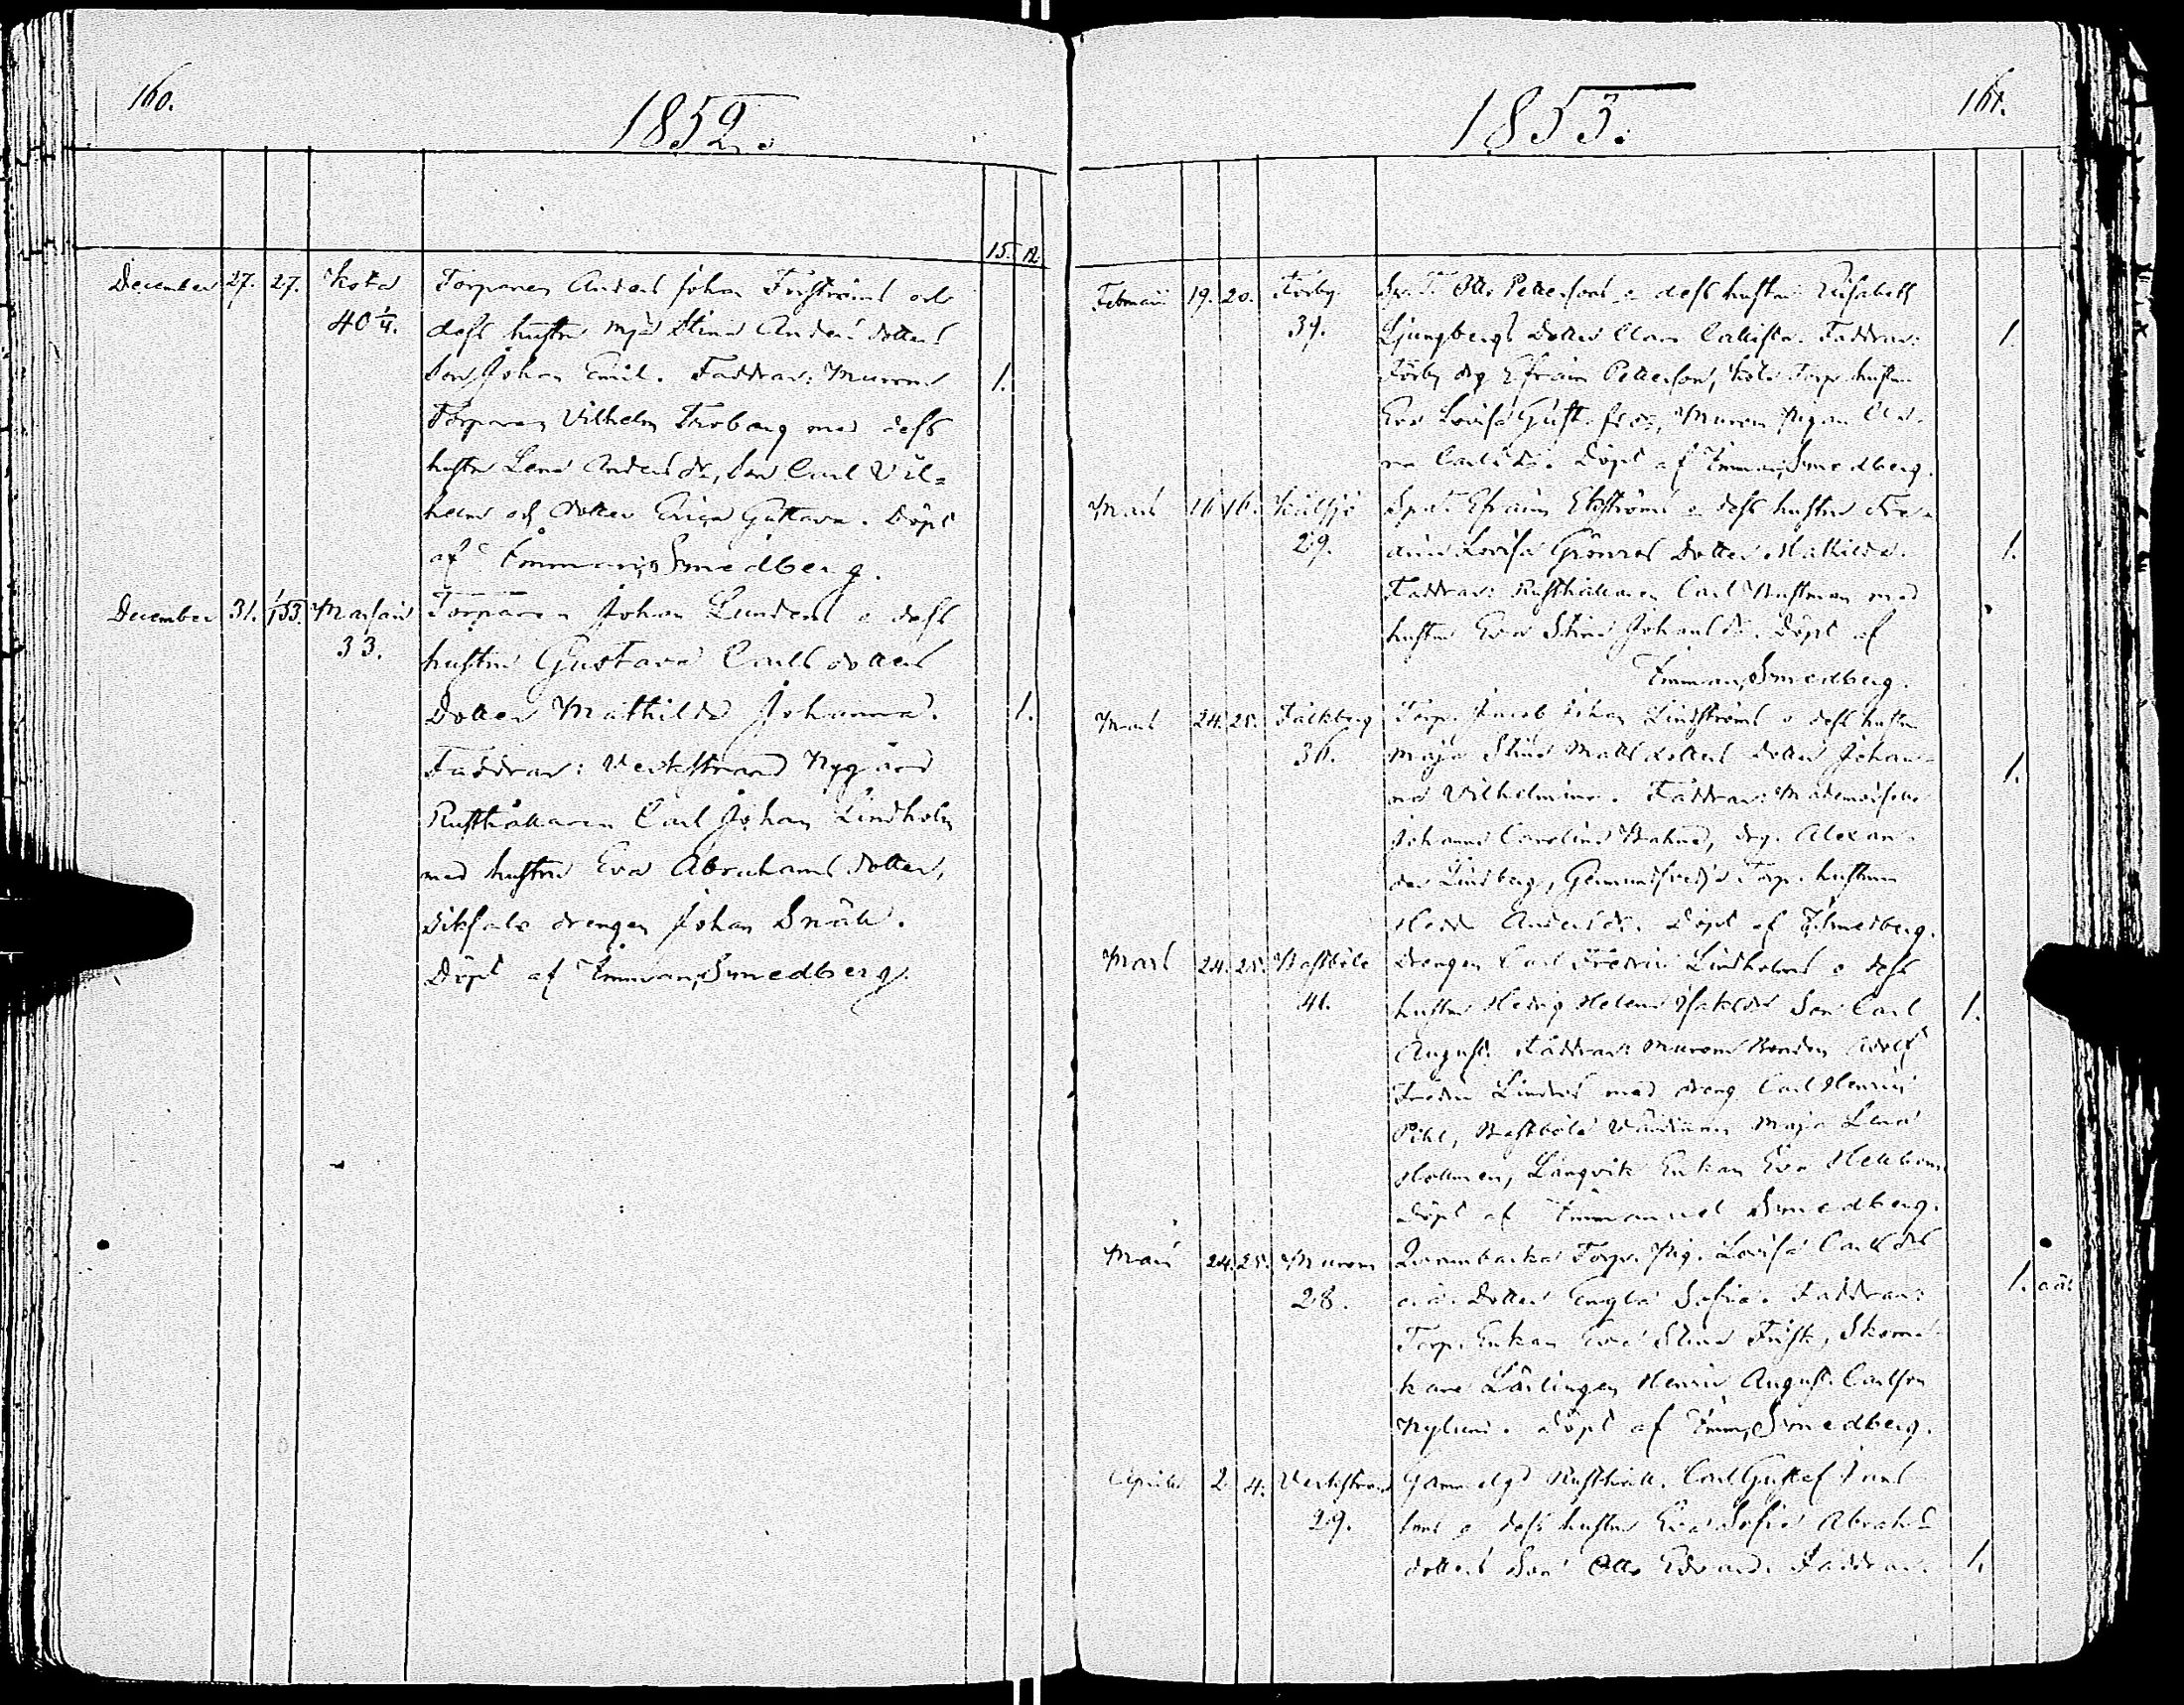 160.
1852.
15. 12.
December 27. 27. Kota Torparen Anders Johan Friströms och
40 1/4. dess hustru Maja Stina Anders dotters
Son Johan Emil. Faddrar: Murom 1.
Torparen Vilhelm Froberg med dess
hustru Lena Anders dr, Son Carl Vil=
helm och dotter Erica Gustava. Döpt
af Emman, Smedberg.
December 31. 1/1 53. Torparen Johan Lundens o dess
33. hustru Gustava Carls dotters
Dotter Mathilda Johanna. 1.
Faddrar: Verkstrand Nygård
Rusthållaren Carl Johan Lindholm
med hustru Eva Abrahams dotter,
drengen Johan Snäll.
Döpt af Emman, Smedberg.
1853.
161.
Februarii 19. 20. Förby Otto Pettersons o dess hustrus Elisabeth
39. Ljungbergs Dotter Clara Callista. Faddrar: 1.
Förby drg Efraim Petterson, Kota Torp. hustru
Eva Lovisa Gust. Murom Pigan
Carls dr. Döpt af Emman, Smedberg.
Mars 16 16. Efraim Ekströms o dess hustru
29. Lovisa Grönros Dotter Mathilda. 1.
Faddrar: Rusthållaren Carl med
hustru Eva Stina Johans dr. Döpt af
Emman, Smedberg.
Mars 24. 25. Falkberg Torp. Jacob Johan Lindströms o dess hustru
36. Maja Stina Matts dotters dotter Johan-
na Vilhelmina. Faddrar: Mademoiselle 1.
Johanna Carolina drg. Alexan-
der Lindberg, Torp. hustrun
Hedda Anders dr. Döpt af E. Smedberg.
Mars 24. 25. Bastböle Drengen Carl Fredric Lindholms o dess
41. hustru Hedvig Helena Isaks dr Son Carl 1.
August. Faddrar: Murom Bonden Adolf
Fredric Lindros med dreng Carl Henric
Pihl, Bastböle Värdinnan Maja Lena
Långvik Enkan Eva
Döpt af Emmanuel Smedberg.
Mars 24. 25. Murom Torp. Pig. Lovisa Carls drs
28. o.ä. Dotter Engla Sofia. Faddrar: 1. o.ä.
Torp. Enkan Eva Stina Frisk, Skoma-
kare Lärlingen Henric August Carlson
Nylund. Döpt af Emm, Smedberg.
Aprilis 2. 4. Verkstrand Rusthåll. Carl Gustaf
29. sons o dess hustru Eva Sofia Abrahs
dotters Son Otto Edvard. Faddrar: 1.